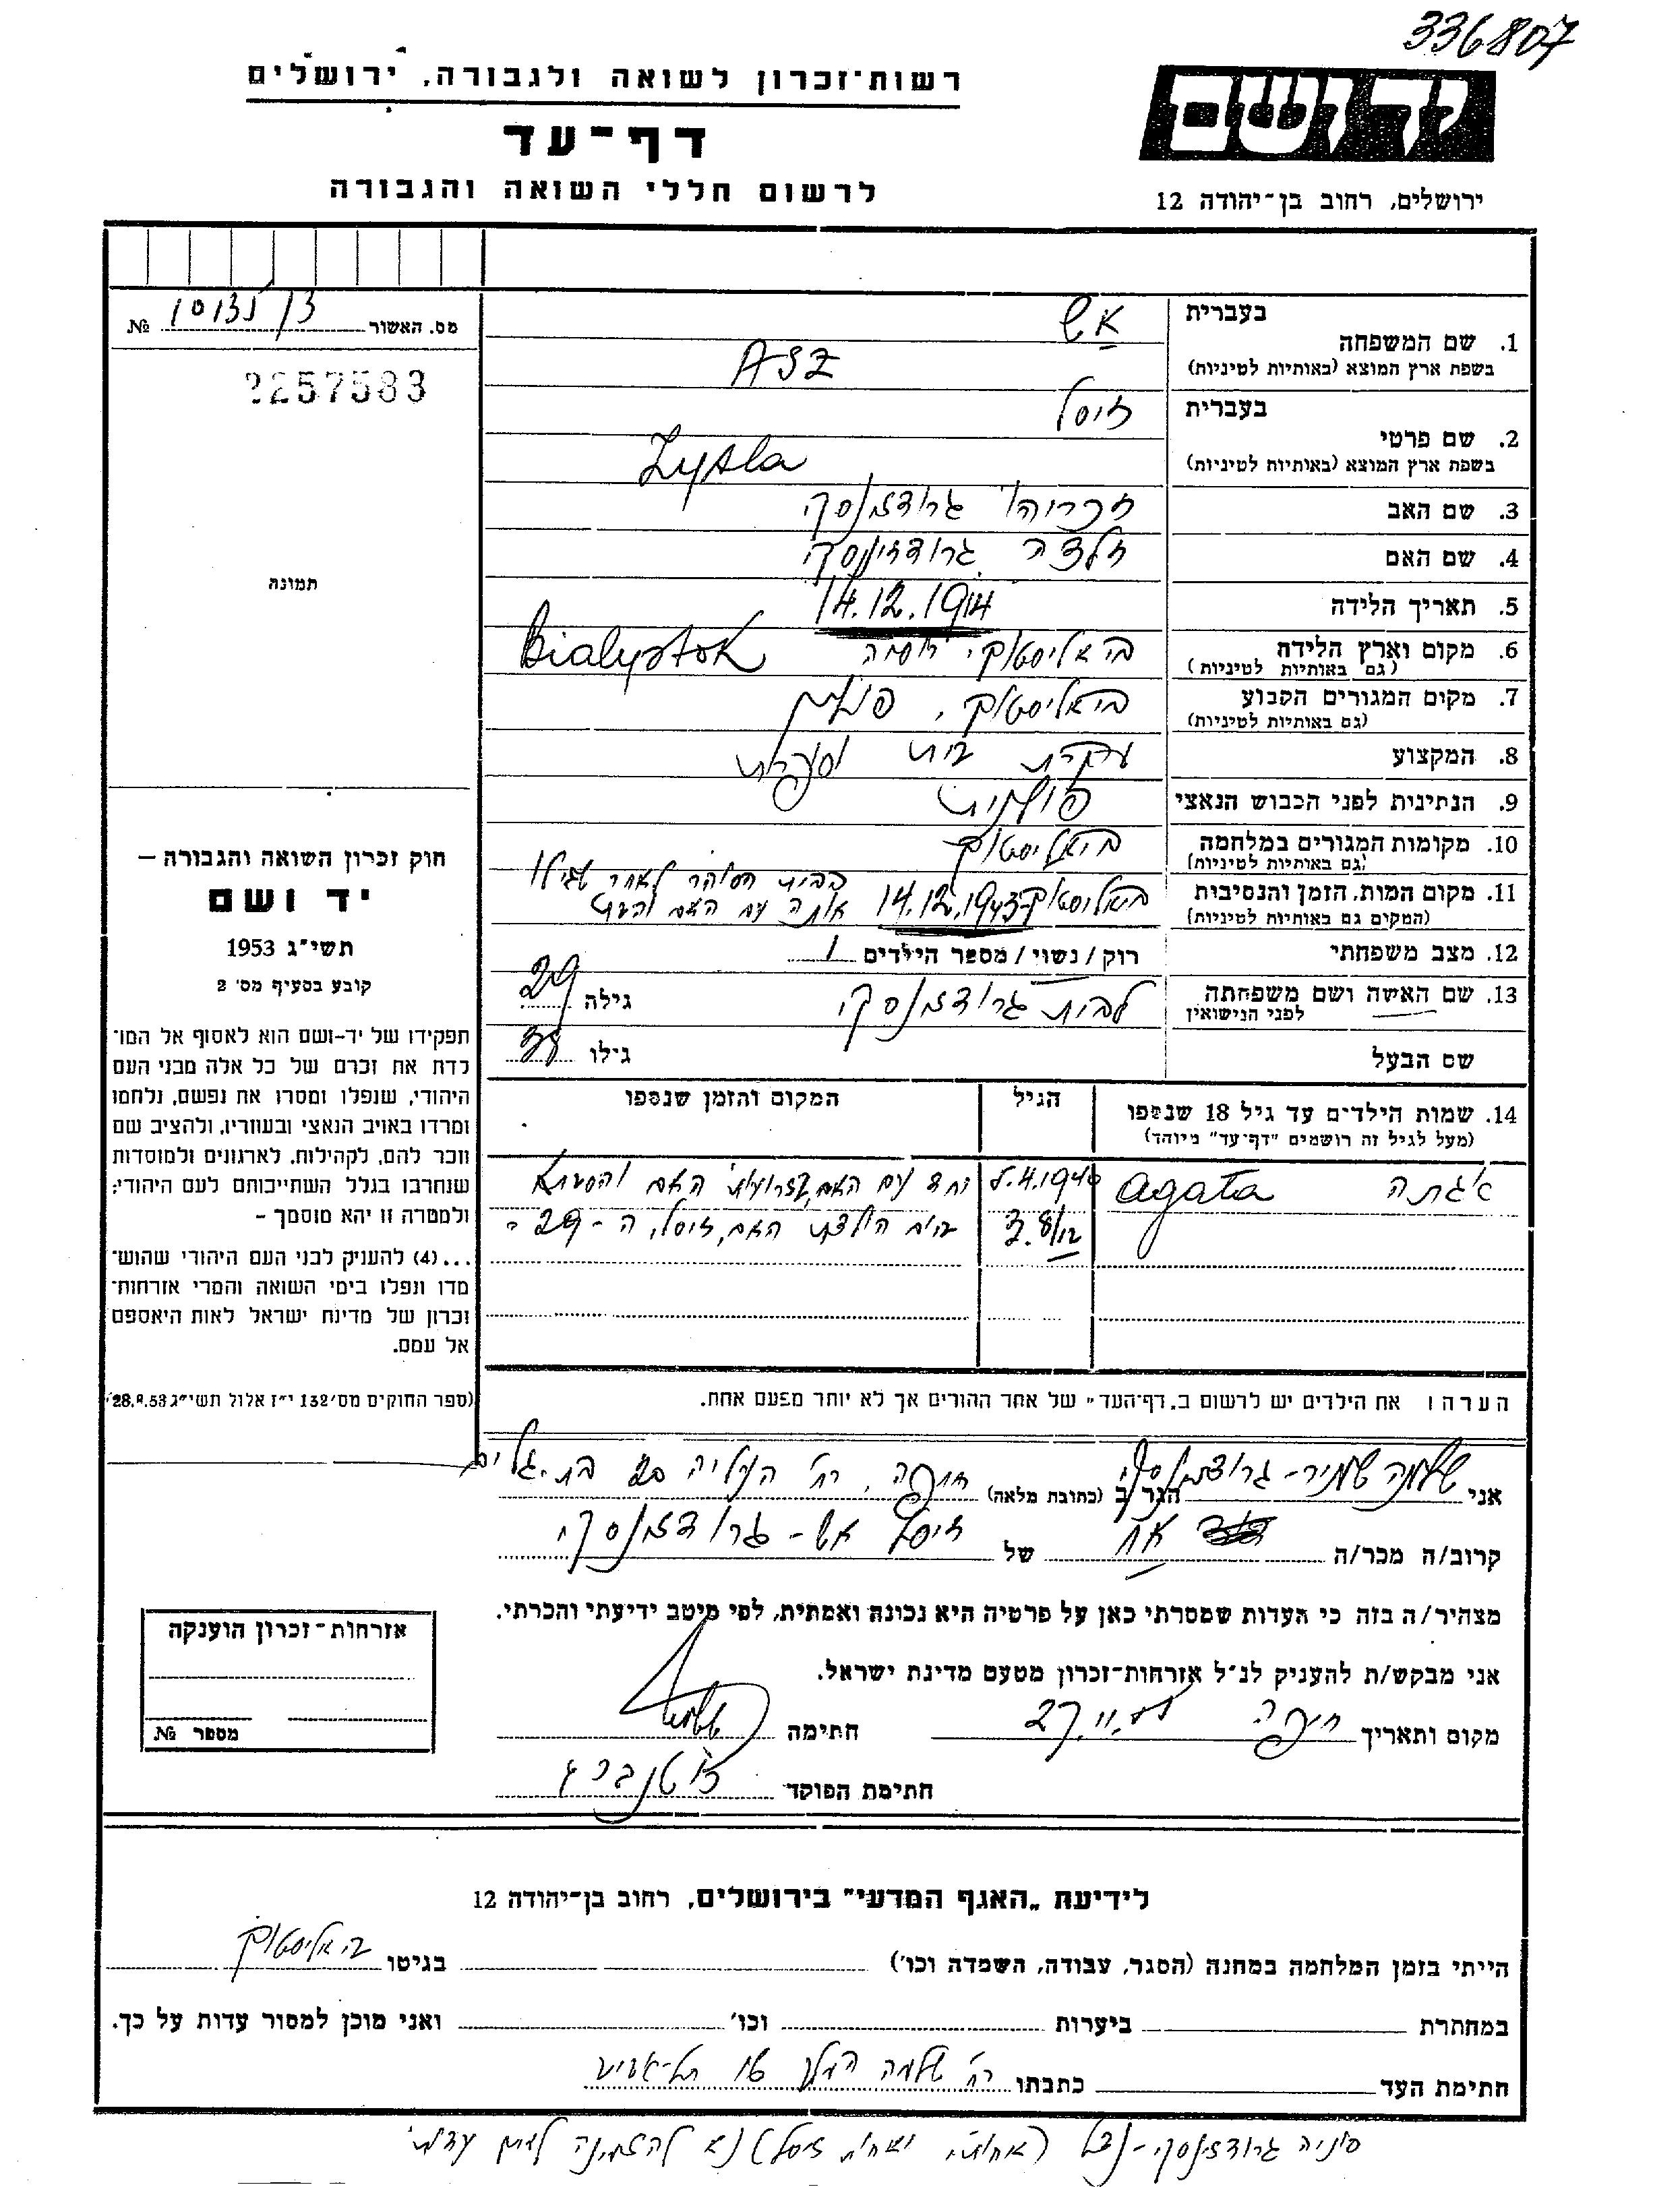 336807
יד ושם
ירושלים, רחוב בן-יהודה 12
רשות-זכרון לשואה ולגבורה, ירושלים
דף-עד
לרשום חללי השואה והגבורה
מס. האשור № 
2257583
תמונה
חוק זכרון השואה והגבורה —
יד ושם
תשי"ג 1953
קובע בסעיף מס' 2
תפקידו של יד-ושם הוא לאסוף אל המו־
לדת את זכרם של כל אלה מבני העם
היהודי, שנפלו ומסרו את נפשם, נלחמו
ומרדו באויב הנאצי ובעוזריו, ולהציב שם
וזכר להם, לקהילות, לארגונים ולמוסדות
שנחרבו בגלל השתייכותם לעם היהודי;
ולמטרה זו יהא מוסמך -
...(4) להעניק לבני העם היהודי שהוש־
מדו ונפלו בימי השואה והמרי אזרחות־
זכרון של מדינת ישראל לאות היאספם
אל עמם.
(ספר החוקים מס' 132 י"ז אלול תשי"ג 28.8.53)
בעברית אש
1. שם המשפחה
בשפת ארץ המוצא (באותיות לטיניות) ASZ
בעברית זיסל
2. שם פרטי
בשפת ארץ המוצא (באותיות לטיניות) Zysla
3. שם האב זכריהו גרודזנסקי
4. שם האם זלדה גרודזינסקי
5. תאריך הלידה 14.12.1914
6. מקום וארץ הלידה ביאליסטוק, רוסיה Bialystok
(גם באותיות לטיניות)
7. מקום המגורים הקבוע ביאליסטוק, פולין
(גם באותיות לטיניות)
8. המקצוע עקרת בית
9. הנתינות לפני הכבוש הנאצי פולנית
10. מקומות המגורים במלחמה ביאליסטוק
(גם באותיות לטיניות)
11. מקום המות, הזמן והנסיבות בבית הסוהר לאחר שגילו
(המקום גם באותיות לטיניות) ביאליסטוק 14.12.1943 אותה עם האם והבת
12. מצב משפחתי רוק / נשוי / מספר הילדים 1
13. שם האשה ושם משפחתה לבית גרודזנסקי גילה 29
לפני הנישואין
שם הבעל גילו 38
14. שמות הילדים עד גיל 18 שנספו הגיל המקום והזמן שנספו
(מעל לגיל זה רושמים "דף-עד" מיוחד)
אגתה agata 4.1940 יחד עם האם, בזרועות האם
3 8/12 ביום הולדת האם, זיסל, ה-29-
הערה: את הילדים יש לרשום ב„דף-העד" של אחד ההורים אך לא יותר מפעם אחת.
אני שלמה שמיר-גרודזנסקי הגר/ב (כתובת מלאה) חיפה, רח' העליה 20 בת-גלים
קרוב/ה מכר/ה אח של זיסל אש-גרודזנסקי
מצהיר/ה בזה כי העדות שמסרתי כאן על פרטיה היא נכונה ואמתית, לפי מיטב ידיעתי והכרתי.
אני מבקש/ת להעניק לנ"ל אזרחות-זכרון מטעם מדינת ישראל.
מקום ותאריך חיפה חתימה
חתימת הפוקד
אזרחות-זכרון הוענקה
מספר №
לידיעת „האגף המדעי" בירושלים, רחוב בן-יהודה 12
הייתי בזמן המלחמה במחנה (הסגר, עבודה, השמדה וכו') בגיטו ביאליסטוק
במחתרת ביערות וכו' ואני מוכן למסור עדות על כך.
חתימת העד כתבתו רח' שלמה המלך תל-אביב
סוניה גרודזינסקי (אחותי ואחות זיסל) נא להזמינה לשם עדות